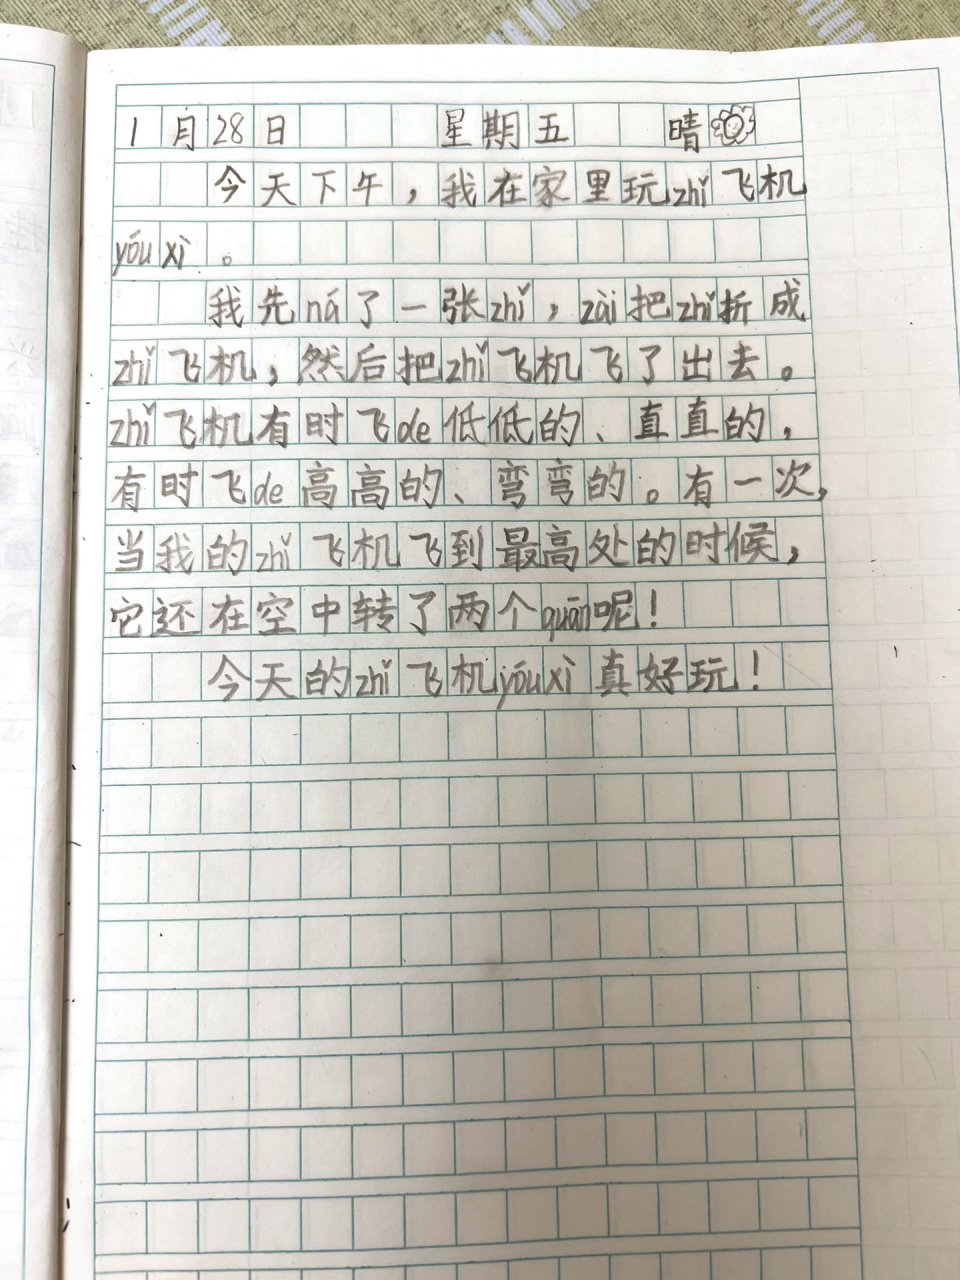 1月28日 星期五 晴
今天下午，我在家里玩zhǐ飞机
yóuxì。
我先ná了一张zhǐ，zài把zhǐ折成
zhǐ飞机，然后把zhǐ飞机飞了出去。
zhǐ飞机有时飞de低低的、直直的，
有时飞de高高的、弯弯的。有一次，
当我的zhǐ飞机飞到最高处的时候，
它还在空中转了两个quān呢！
今天的zhǐ飞机yóuxì真好玩！